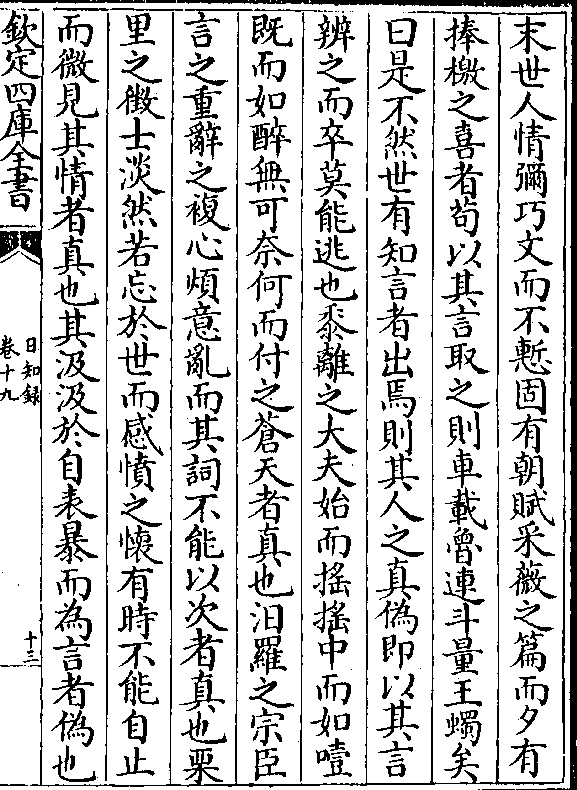 末世人情彌巧文而不慙固有朝賦采薇之篇而夕有
捧檄之喜者苟以其言取之則車載魯連斗量王蠋矣
曰是不然世有知言者出焉則其人之真偽即以其言
辨之而卒莫能逃也黍離之大夫始而搖搖中而如噎
既而如醉無可奈何而付之蒼天者真也汨羅之宗臣
言之重辭之複心煩意亂而其詞不能以次者真也栗
里之徴士淡然若忘於世而感憤之懷有時不能自止
而微見其情者真也其汲汲於自表暴而為言者偽也
欽定四庫全書
日知錄
卷十九
十三